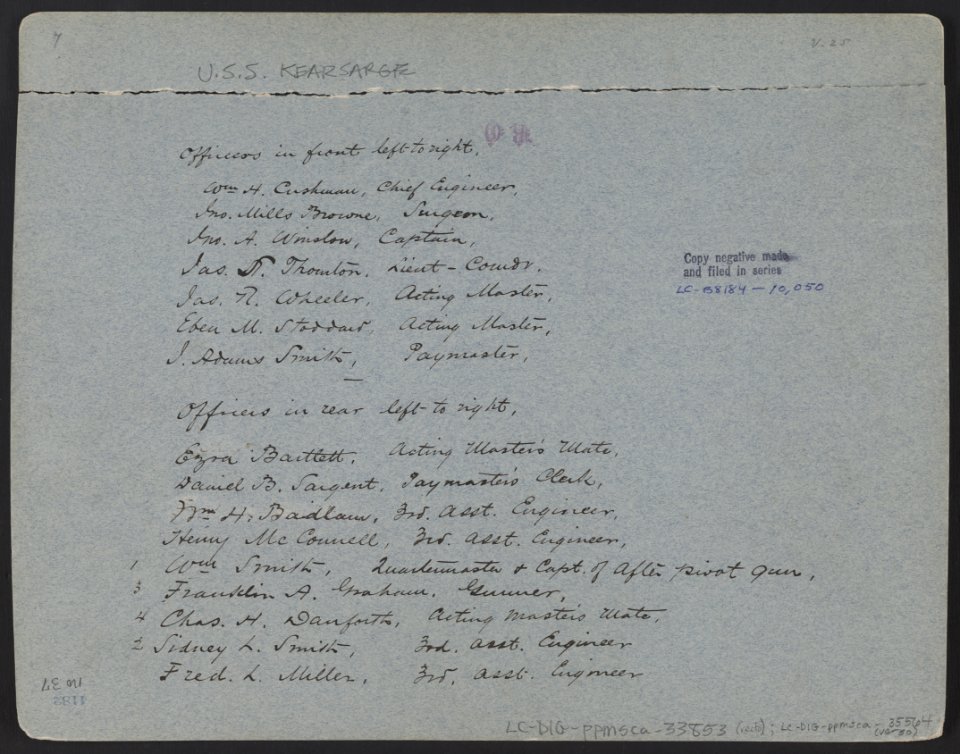 7
V. 25
U.S.S. KEARSARGE
Officers in front left to right.
Wm H. Cushman, Chief Engineer,
Jno. Mills Browne, Surgeon,
Jno. A. Winslow, Captain,
Jas. S. Thornton, Lieut-Comdr.
Jas. R. Wheeler, Acting Master,
Eben M. Stoddard, Acting Master,
J. Adams Smith, Paymaster,
Copy negative made
and filed in series
LC-B8184-10,050
Officers in rear left to right,
Ezra Bartlett, Acting Master's Mate,
Daniel B. Sargent, Paymaster's Clerk,
Wm H. Badlam, 3rd. Asst. Engineer,
Henry McConnell, 3rd. Asst. Engineer,
1 Wm Smith, Quartermaster & Capt. of After pivot gun,
3 Franklin A. Graham, Gunner,
4 Chas. H. Danforth, Acting Master's Mate,
2 Sidney L. Smith, 3rd. Asst. Engineer
Fred. L. Miller, 3rd. Asst. Engineer
No 37
1182
LC-DIG-ppmsca-33853 (recto); LC-DIG-ppmsca-35564 (verso)